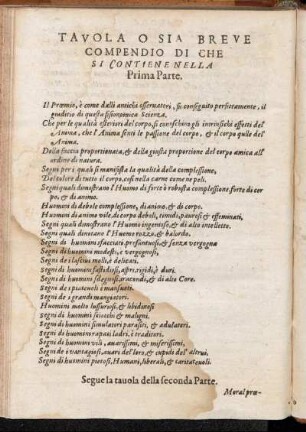 TAVOLA O SIA BREVE
COMPENDIO DI CHE
SI CONTIENE NELLA
Prima Parte.
Il Proemio, è come dalli antichi osservatori, si conseguito perfettamente, il
giudicio di questa fisionomica Scienza.
Che per le qualità esteriori del corpo, si conoschino gli intrinsichi affetti del
Anima, che l'Anima senti le passione del corpo, & il corpo quile del'
Anima.
Della faccia proportionata, & della giusta proportione del corpo amica all'
ordine di natura.
Segni per i quali si manifesta la qualità della complessione,
Del colore di tutto il corpo, cosi nella carne come ne peli.
Segni quali dimostrano l'Huomo di forte è robusta complessione forte di cor-
po, & da animo.
Huomini di debole complessione, di animo, & di corpo.
Huomini di animo vile, di corpo deboli, timidi, paurosi, & effeminati,
Segni quali dimostrano l'Huomo ingenioso, & di alto intelletto.
Segni quali denotano l'Huomo rozzo, & balordo.
Segni di huomini sfacciati presontuosi, & senza vergogna
Segni di huomini modesti, e vergognosi,
Segni de i lascivi molli, e delicati.
Segni di huomini fastidiosi, aspri, rigidi, è duri.
Segni di huomini sdegnosi, iracundi, & di alto Core.
Segni de i piacevoli e mansueti.
Segni de i grandi mangiatori.
Huomini molto lussuriosi, & libidinosi
Segni di huomini sciocchi & maligni.
Segni di huomini simulatori parasiti, & adulatori.
Segni di huomini rapaci ladri, è traditori.
Segni di huomini vili, avarissimi, & miserissimi,
Segni de i vantagiosi, avari del loro, & cupidi del'altrui.
Segni di huomini pietosi, Humani, liberali, & caritatevoli.
Segue la tavola della seconda Parte.
Moral præ-